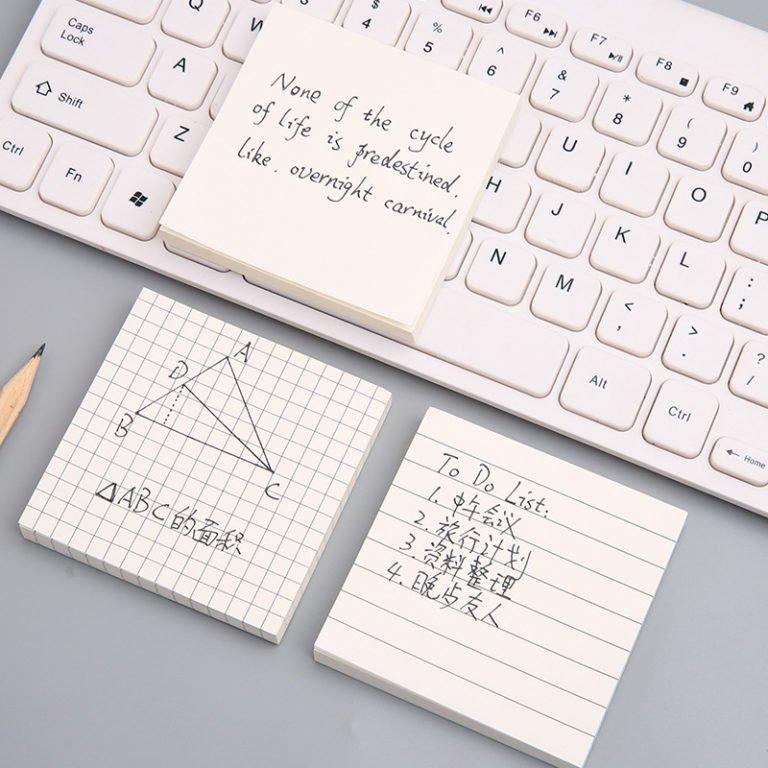 None of the cycle
of life is predestined.
like. overnight carnival.
A
D
B
C
△ABC的面积
To Do List:
1. 中午会议
2. 旅行计划
3. 资料整理
4. 晚歺友人
F6
F7
F8
F9
$ 4
% 5
^ 6
& 7
* 8
( 9
) 0
Q
W
U
I
O
P
Caps Lock
A
H
J
K
L
: ;
Shift
Z
N
M
< ,
> .
? /
Ctrl
Fn
Alt
Ctrl
← Home